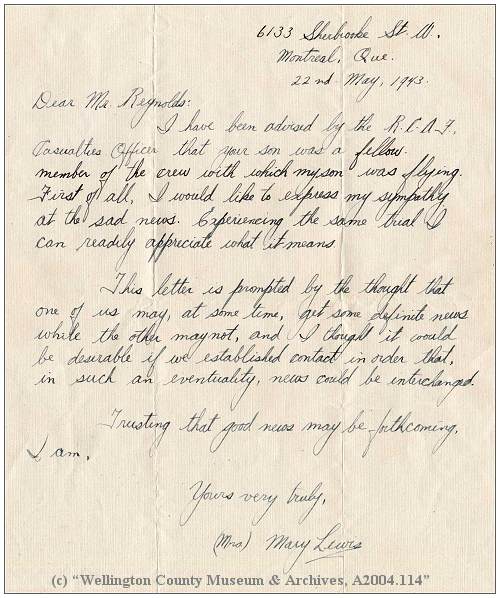 6133 Sherbrooke St. W.
Montreal, Que.
22nd May, 1943.
Dear Mr. Reynolds:
I have been advised by the R.C.A.F.
Casualties Officer that your son was a fellow
member of the crew with which my son was flying.
First of all, I would like to express my sympathy
at the sad news. Experiencing the same trial I
can readily appreciate what it means.
This letter is prompted by the thought that
one of us may, at some time, get some definite news
while the other may not, and I thought it would
be desirable if we established contact in order that,
in such an eventuality, news could be interchanged.
Trusting that good news may be forthcoming,
I am,
Yours very truly,
(Mrs.) Mary Lewis
(c) "Wellington County Museum & Archives, A2004.114"